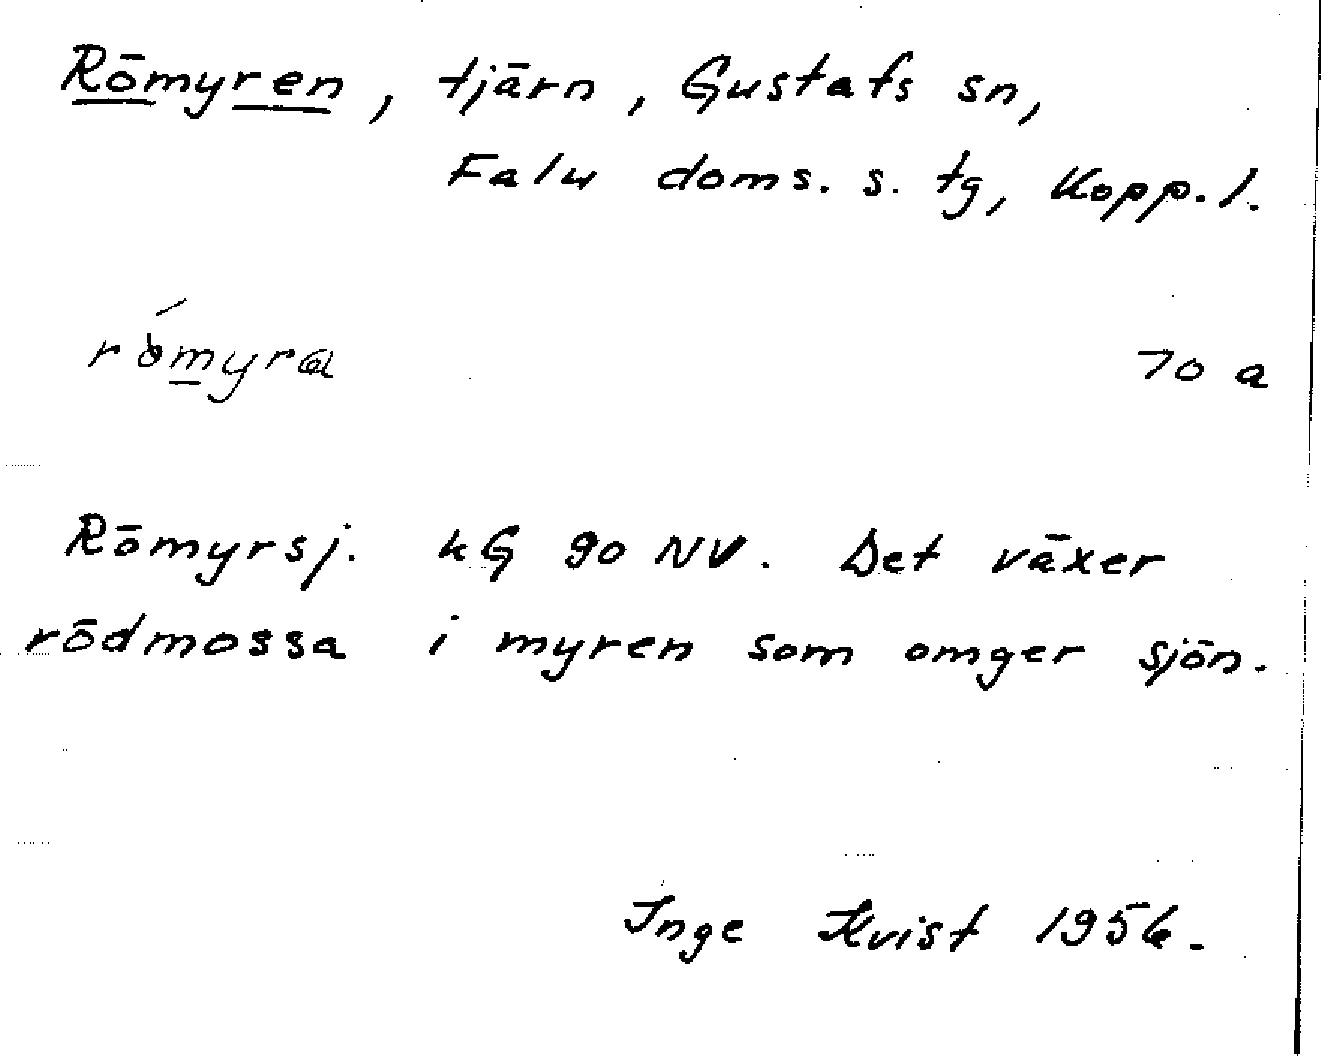 Römyren, tjärn, Gustafs sn,
Falu doms. s. tg, Kopp. l.
70 a
Römyrsj. kG 90 NV. Det växer
rödmossa i myren som omger sjön.
Inge Kvist 1956.